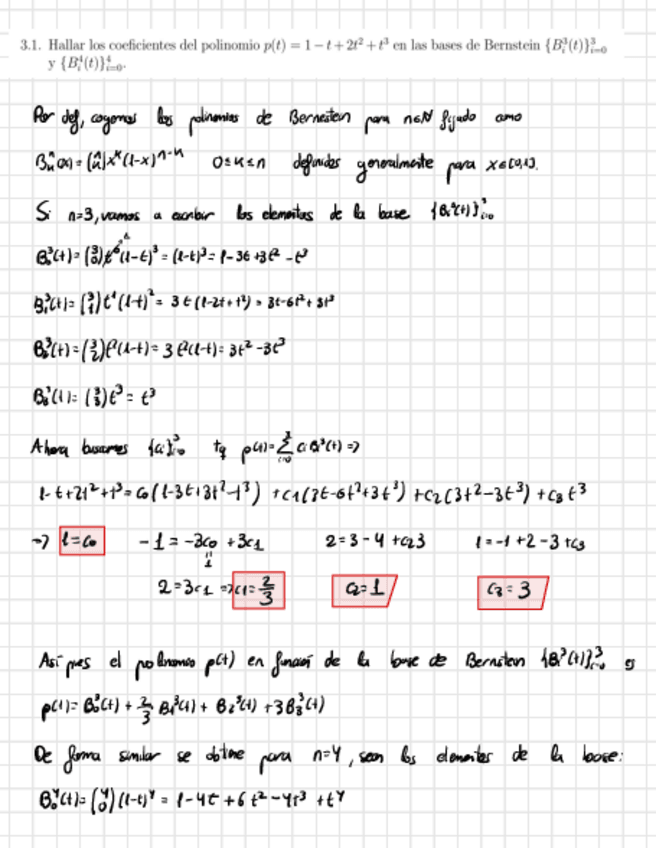 3.1. Hallar los coeficientes del polinomio p(t) = 1 − t + 2t² + t³ en las bases de Bernstein {B_i^3(t)}_{i=0}^3
y {B_i^4(t)}_{i=0}^4.
Por def, cogemos los polinomios de Bernstein para n∈N fijado como
B_k^n(x) = (n k) x^k (1-x)^{n-k} 0≤k≤n definidos generalmente para x∈[0,1].
Si n=3, vamos a escribir los elementos de la base {B_i^3(t)}_{i=0}^3
B_0^3(t) = (3 0) t^0 (1-t)^3 = (1-t)^3 = 1-3t+3t^2-t^3
B_1^3(t) = (3 1) t^1 (1-t)^2 = 3t(1-2t+t^2) = 3t-6t^2+3t^3
B_2^3(t) = (3 2) t^2 (1-t) = 3t^2(1-t) = 3t^2-3t^3
B_3^3(t) = (3 3) t^3 = t^3
Ahora buscamos {c_i}_{i=0}^3 tq p(t) = ∑_{i=0}^3 c_i B_i^3(t) =>
1-t+2t^2+t^3 = c_0(1-3t+3t^2-t^3) + c_1(3t-6t^2+3t^3) + c_2(3t^2-3t^3) + c_3 t^3
=> 1=c_0 -1 = -3c_0 + 3c_1 2=3-4+c_2 3 1=-1+2-3+c_3
" 1
2=3c_1 => c_1 = 2/3 c_2=1 c_3=3
Así pues el polinomio p(t) en función de la base de Bernstein {B_i^3(t)}_{i=0}^3 es
p(t) = B_0^3(t) + 2/3 B_1^3(t) + B_2^3(t) + 3B_3^3(t)
De forma similar se obtiene para n=4, sean los elementos de la base:
B_0^4(t) = (4 0) (1-t)^4 = 1-4t+6t^2-4t^3+t^4